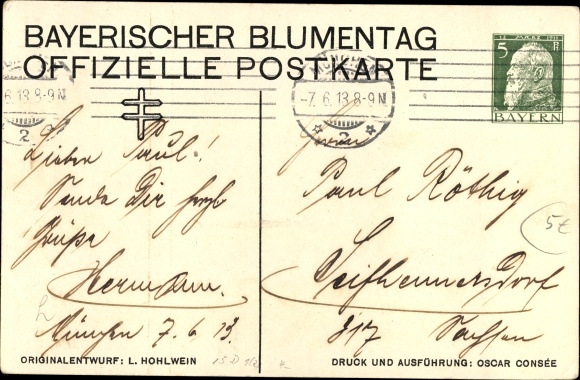 BAYERISCHER BLUMENTAG
OFFIZIELLE POSTKARTE
12. MÄRZ 1911
5 Pf
BAYERN
6.13.8-9N
2
-7.6.13.8-9N
2
Lieber Paul!
Sende Dir herzl.
Grüße
Hermann.
München 7.6.13.
Herrn
Paul Röthig
Seifhennersdorf
317 Sachsen
5€
15 D
ORIGINALENTWURF: L. HOHLWEIN
DRUCK UND AUSFÜHRUNG: OSCAR CONSÉE